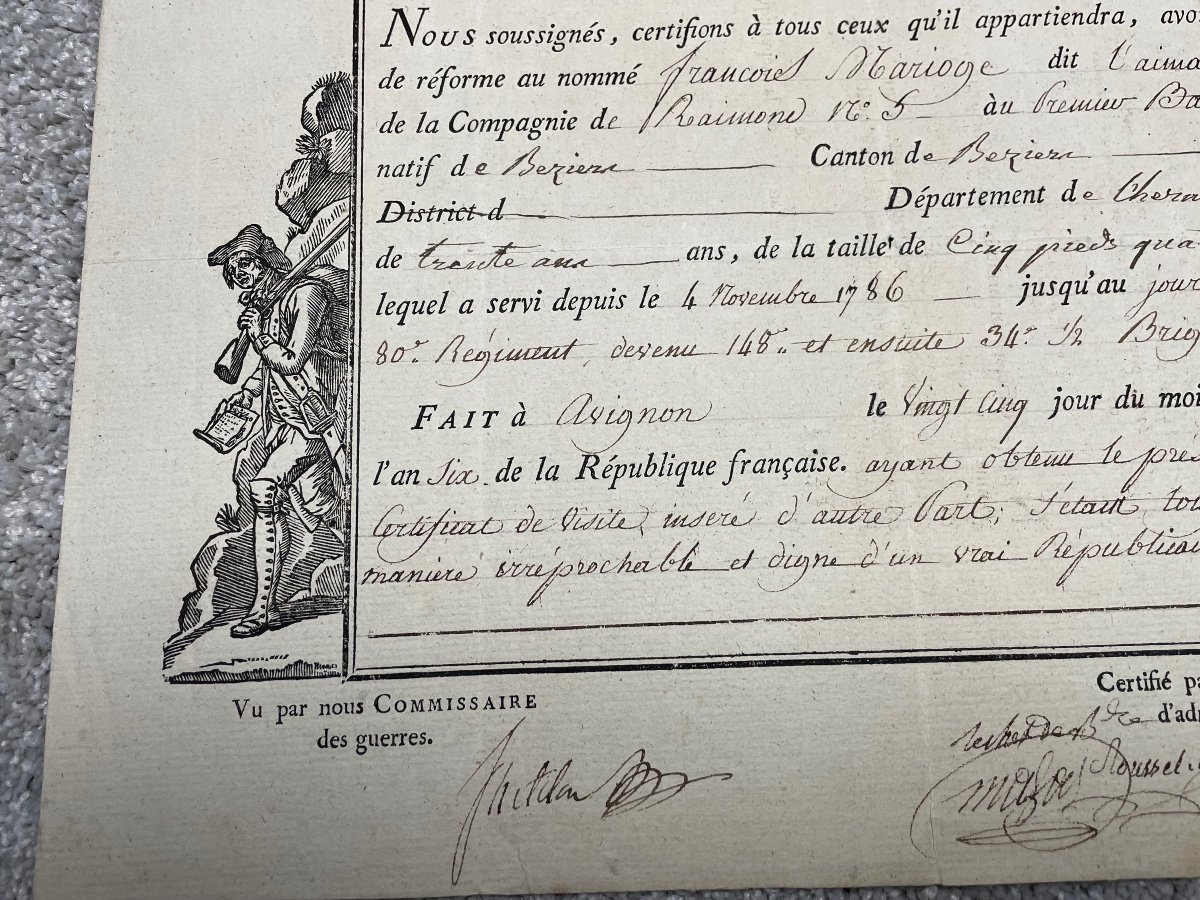 Nous soussignés, certifions à tous ceux qu'il appartiendra, avo
de réforme au nommé francois Marioge dit l'aima
de la Compagnie de Raimond N.° 5 - au Premier Ba
natif de Beziers — Canton de Beziers —
District d — Département de L'hera
de trente ans — ans, de la taille de Cinq pieds qua
lequel a servi depuis le 4 Novembre 1786 — jusqu'au jour
80.e Régiment, devenu 148.e et ensuite 34.e 1/2 Brig
FAIT à Avignon le Vingt Cinq jour du moi
l'an Six de la République française. ayant obtenu le pres
Certificat de Visite, inseré d'autre Part, s'étant tou
maniere irréprochable et digne d'un vrai Républicai
Vu par nous COMMISSAIRE
des guerres.
Certifié pa
d'adm
Roussel